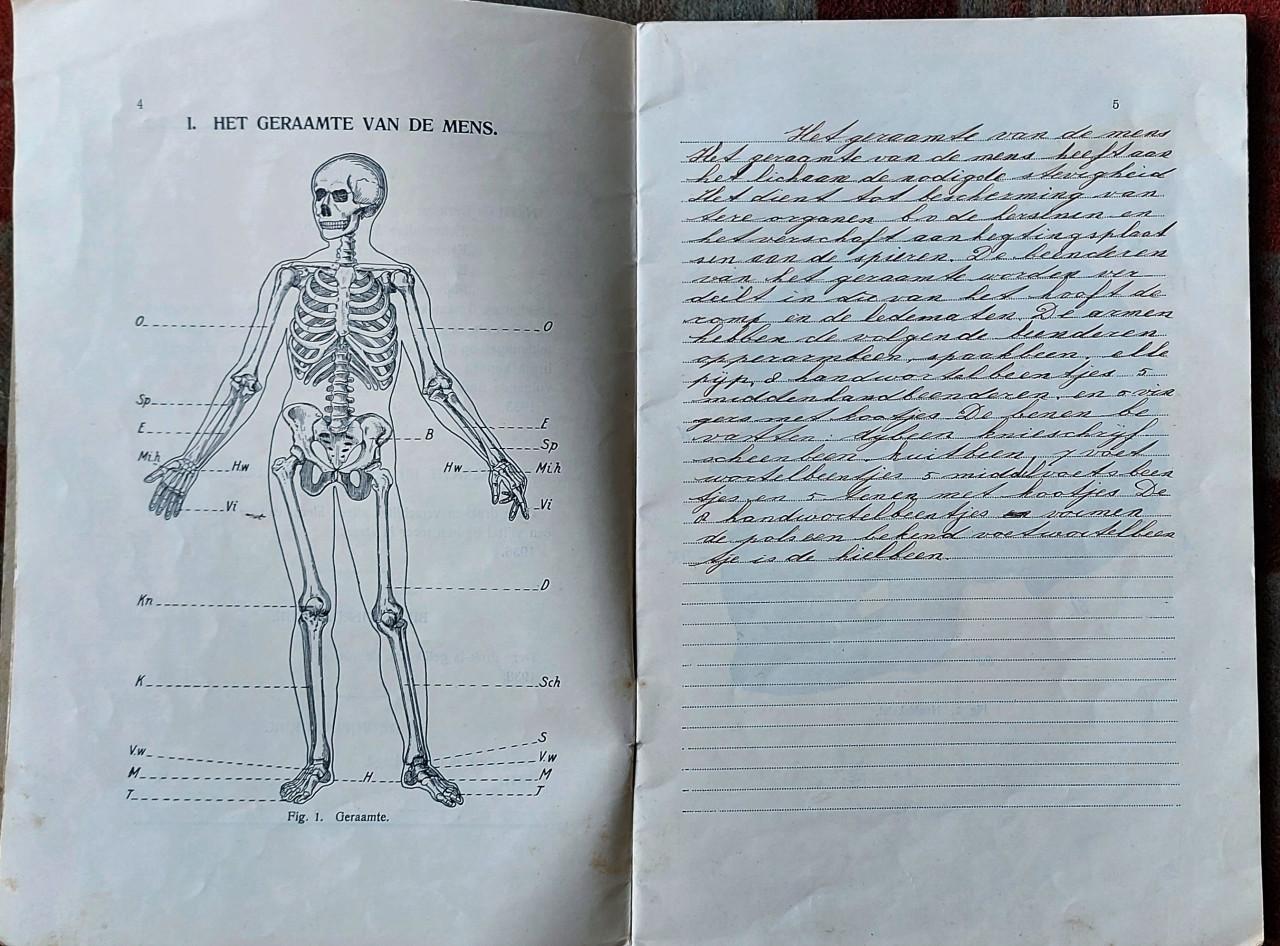 4
I. HET GERAAMTE VAN DE MENS.
O
O
Sp
E
E
B
Sp
Mi.h
H.w
H.w
Mi.h
Vi
Vi
D
Kn
K
Sch
S
V.w
V.w
M
H
M
T
T
Fig. 1. Geraamte.
5
Het geraamte van de mens
Het geraamte van de mens heeft aan
het lichaam de nodigde stevigheid
Het dient tot bescherming van
tere organen b.v de hersenen en
het verschaft aanhegtingsplaat
sen aan de spieren. De beenderen
van het geraamte worden ver
deelt in die van het hooft de
romp en de ledematen. De armen
hebben de volgende beenderen
opperarmbeen, spaakbeen, elle
pijp, 8 handwortelbeentjes 5
middenhandbeenderen, en 5 vin
gers met kootjes. De benen be
vatten: dijbeen knieschrijf
scheenbeen, kuitbeen, 7 voet
wortelbeentjes 5 middelvoetsbeen
tjes en 5 tenen met kootjes De
8 handwortelbeentjes vormen
de pols een bekend voetwortelbeen
tje is de hielbeen.